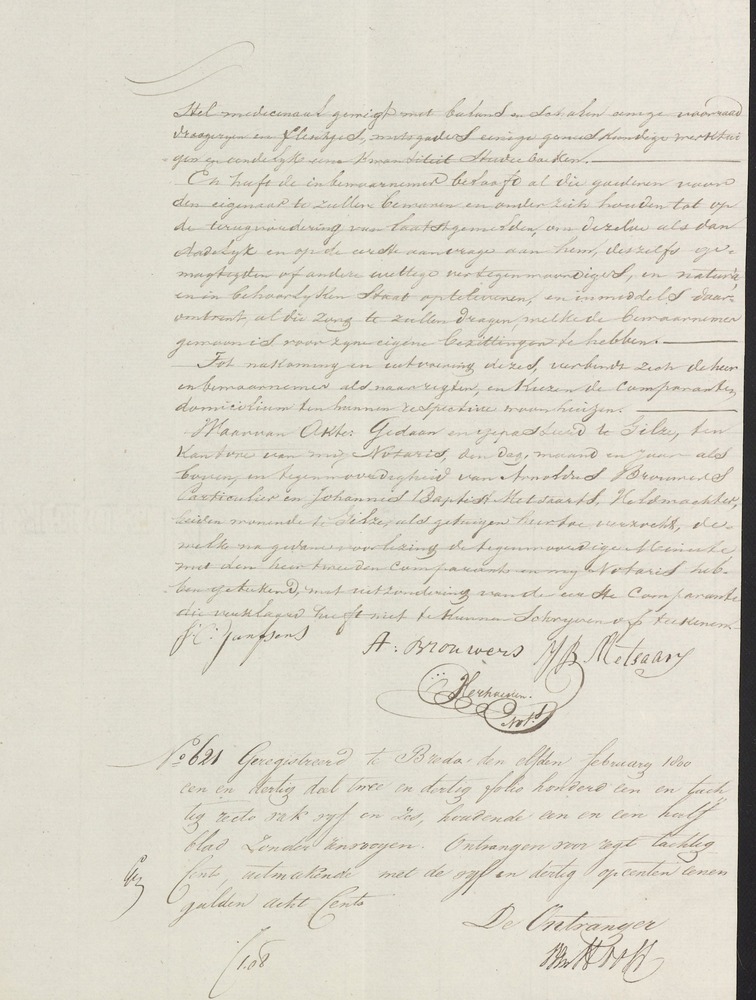 Stel medecenaal gewigt met balans en schalen eenige voorraad
droogeryen en fleschjes, mitsgaders eenige geneeskundige werktui
gen en eendelyk eene kwantiteit Studie boeken.
En heeft de inbewaarnemer beloofd al die goederen voor
den eigenaar te zullen bewaren en onder zich houden tot op
de terugvordering van laatstgemelden, om dezelve als dan
dadelyk en op de eerste aanvrage aan hem, deszelfs ge-
magtigden of andere wettige vertegenwoordigers, in natura
en in behoorlyken Staat opteleveren, en inmiddels daar-
omtrent al die Zorg te zullen dragen, welke de bewaarnemer
gewoon is voor zyne eigene bezittingen te hebben.
Tot nakoming en uitvoering dezes, verbindt zich de heer
inbewaarnemer als naar regten, en kiezen de Comparanten
domicilium ten hunnen respective woonhuizen.
Waarvan Akte: Gedaan en gepasseerd te Gilze, ten
kantore van my Notaris, den dag, maand en jaar als
boven, in tegenwoordigheid van Arnoldus Brouwers
Particulier en Johannes Baptist Metsaars, Veldwachter,
beiden wonende te Gilze, als getuigen hiertoe verzocht, de-
welke na gedane voorlezing de tegenwoordige Minute
met den heer tweeden Comparant en my Notaris heb-
ben geteekend, met uitzondering van de eerste Comparante
die verklaard heeft niet te kunnen Schryven of teekenen.
Janssens A: Brouwers JB Metsaars
Not.s
No 621 Geregistreerd te Breda, den elfden february 1800
een en dertig deel twee en dertig folio honderd een en tach
tig recto vak vyf en zes, houdende een en een half
blad zonder renvooyen. Ontvangen voor regt tachtig
Cent, uitmakende met de vyf en dertig opcenten eenen
gulden acht Cents
De Ontvanger
f 1.08